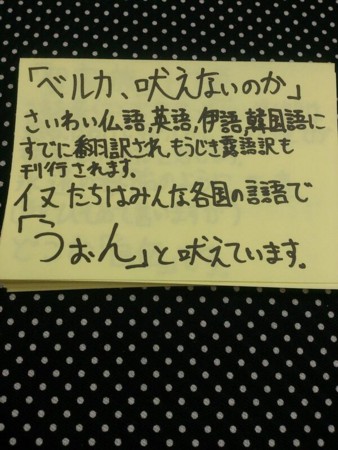 「ベルカ、吠えないのか」
さいわい仏語,英語,伊語,韓国語に
すでに翻訳され、もうじき露語訳も
刊行されます。
イヌたちはみんな各国の言語で
「うぉん」と吠えています。